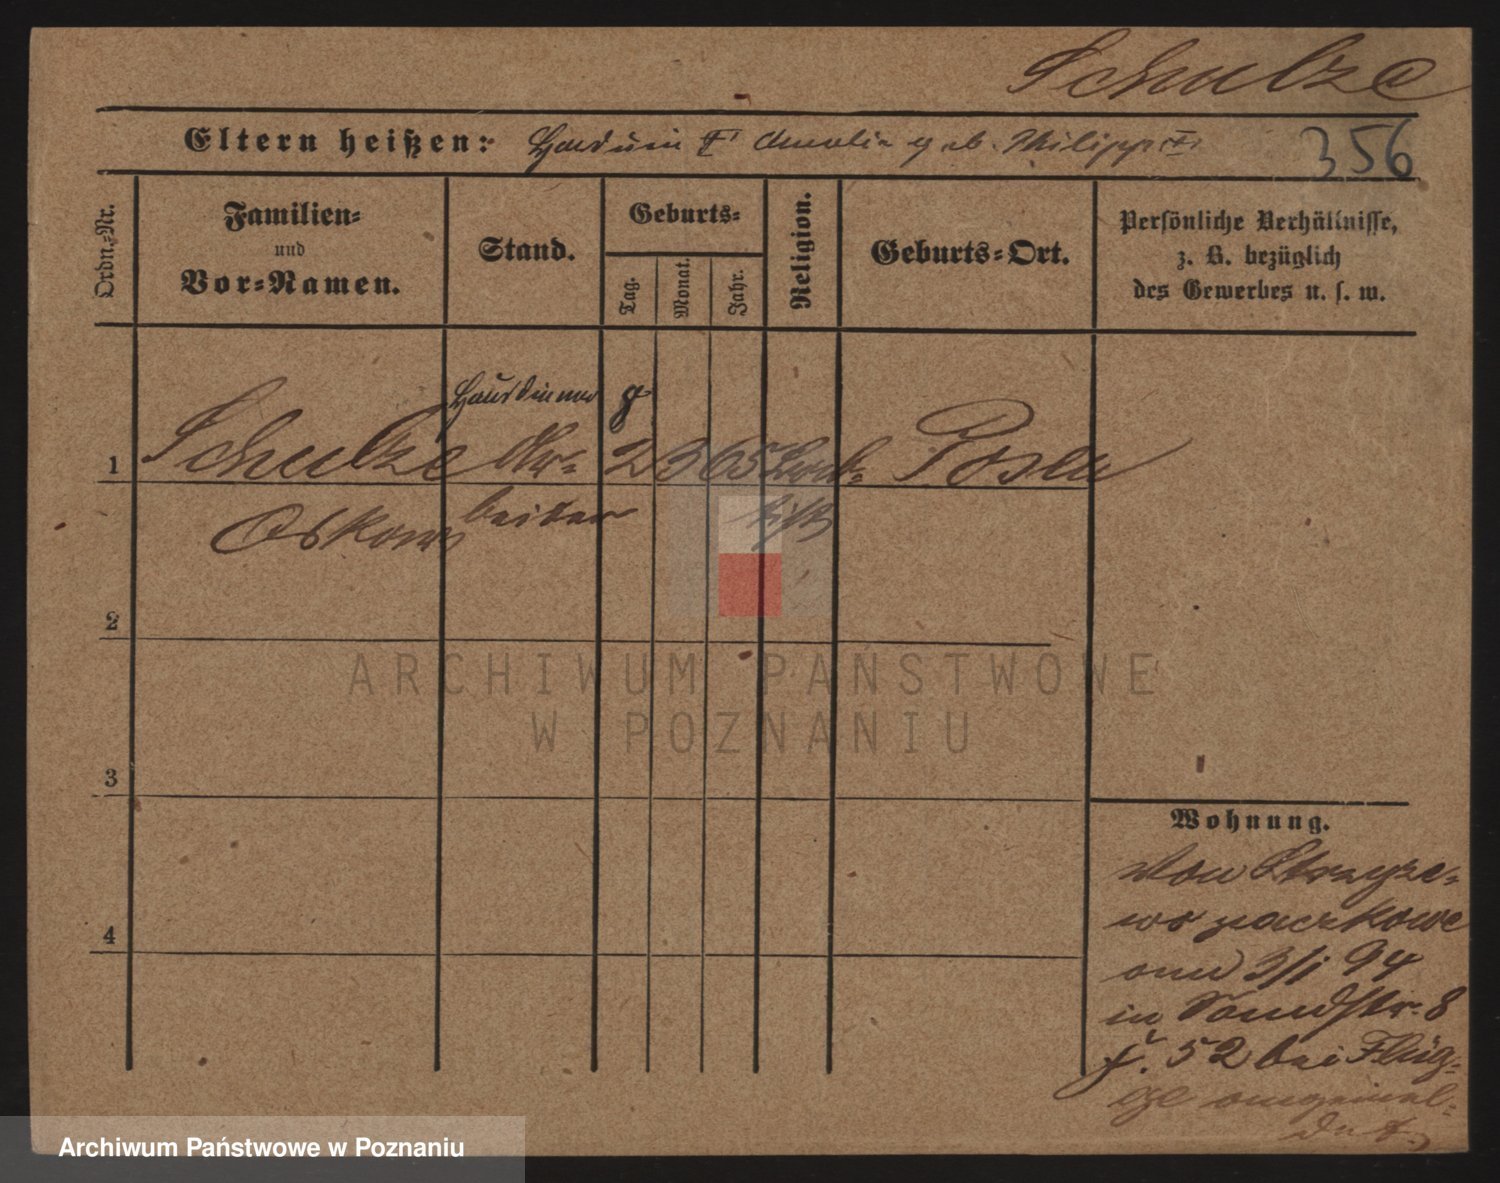 Schulze
Eltern heißen: Amalie geb. Philipp
356
Ordn.-Nr.
Familien-
und
Vor-Namen.
Stand.
Geburts-
Tag.
Monat.
Jahr.
Religion.
Geburts-Ort.
Persönliche Verhältnisse,
z. B. bezüglich
des Gewerbes u. s. w.
Hausdiener 8
1 Schulze Ar- 2 3 65 Posen
Oskar beiter
2
ARCHIWUM PAŃSTWOWE
W POZNANIU
3
Wohnung.
Von
4
3/1 94
in 8
52 bei Flüg-
ge angemel-
det
Archiwum Państwowe w Poznaniu